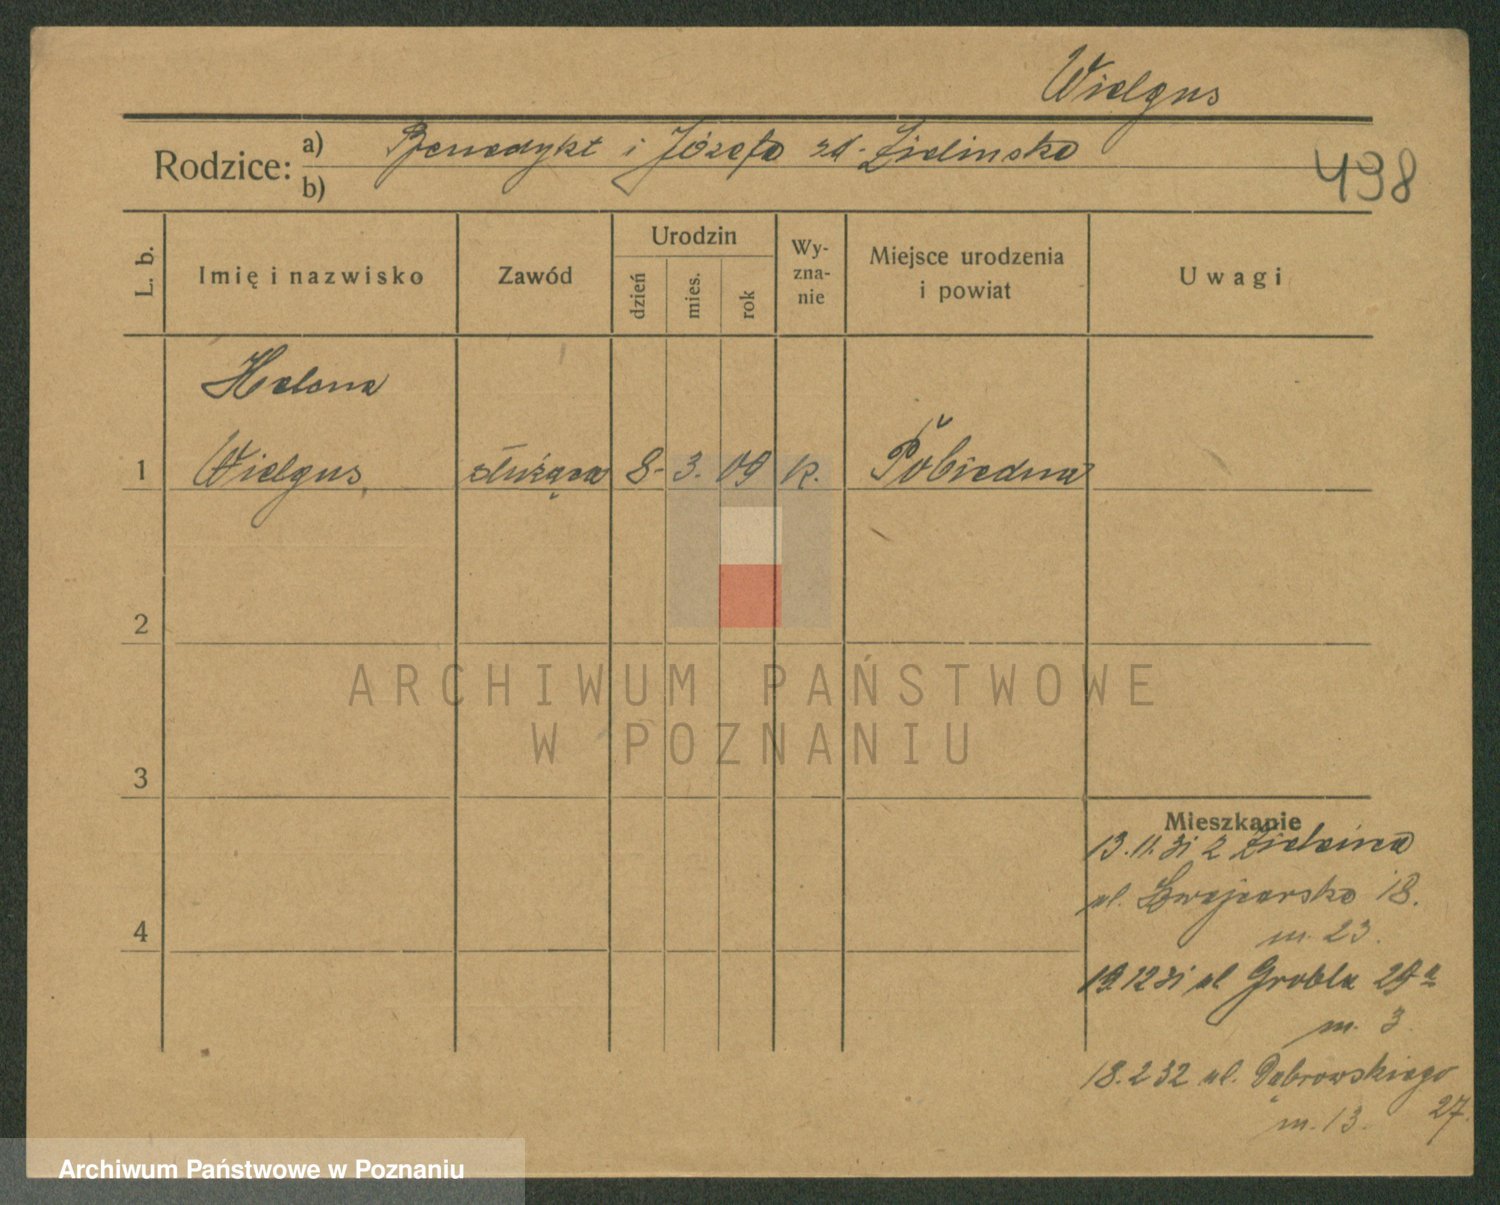 Wielgus
Rodzice:
a) Benedykt i Józefa zd. Zielińska
b)
498
L. b.
Imię i nazwisko
Zawód
Urodzin
dzień
mies.
rok
Wy-
zna-
nie
Miejsce urodzenia
i powiat
Uwagi
Helena
1 Wielgus służąca 8. 3. 09 k. Pobiedna
2
3
4
ARCHIWUM PAŃSTWOWE
W POZNANIU
Mieszkanie
13.11.31 z
ul. Szwajcarska 18.
m. 23.
19.12 31 ul Grobla 29a
m. 3
18.2 32 ul. Dąbrowskiego
27.
m. 13.
Archiwum Państwowe w Poznaniu